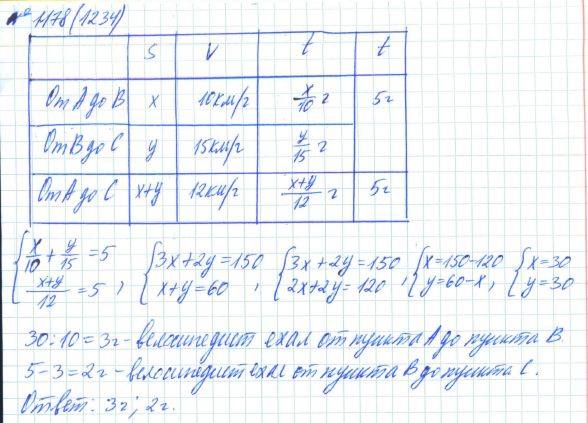 № 1178(1234)
S V t t
От А до В x 10км/г x/10 г 5г
От В до С y 15км/г y/15 г
От А до С x+y 12км/г x+y/12 г 5г
{x/10 + y/15 = 5 {3x+2y=150 {3x+2y=150 {x=150-120 {x=30
x+y/12 = 5 , x+y=60 , 2x+2y=120 , y=60-x , y=30
30:10=3г - велосипедист ехал от пункта А до пункта В.
5-3=2г - велосипедист ехал от пункта В до пункта С.
Ответ: 3г; 2г.